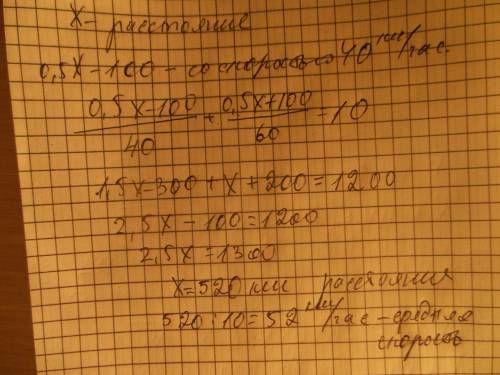 X - расстояние
0,5X-100 - со скоростью 40 км/час.
0,5X-100/40 + 0,5X+100/60 = 10
1,5X-300+X+200=1200
2,5X-100=1200
2,5X=1300
X=520 км расстояние
520:10=52 км/час - средняя
скорость